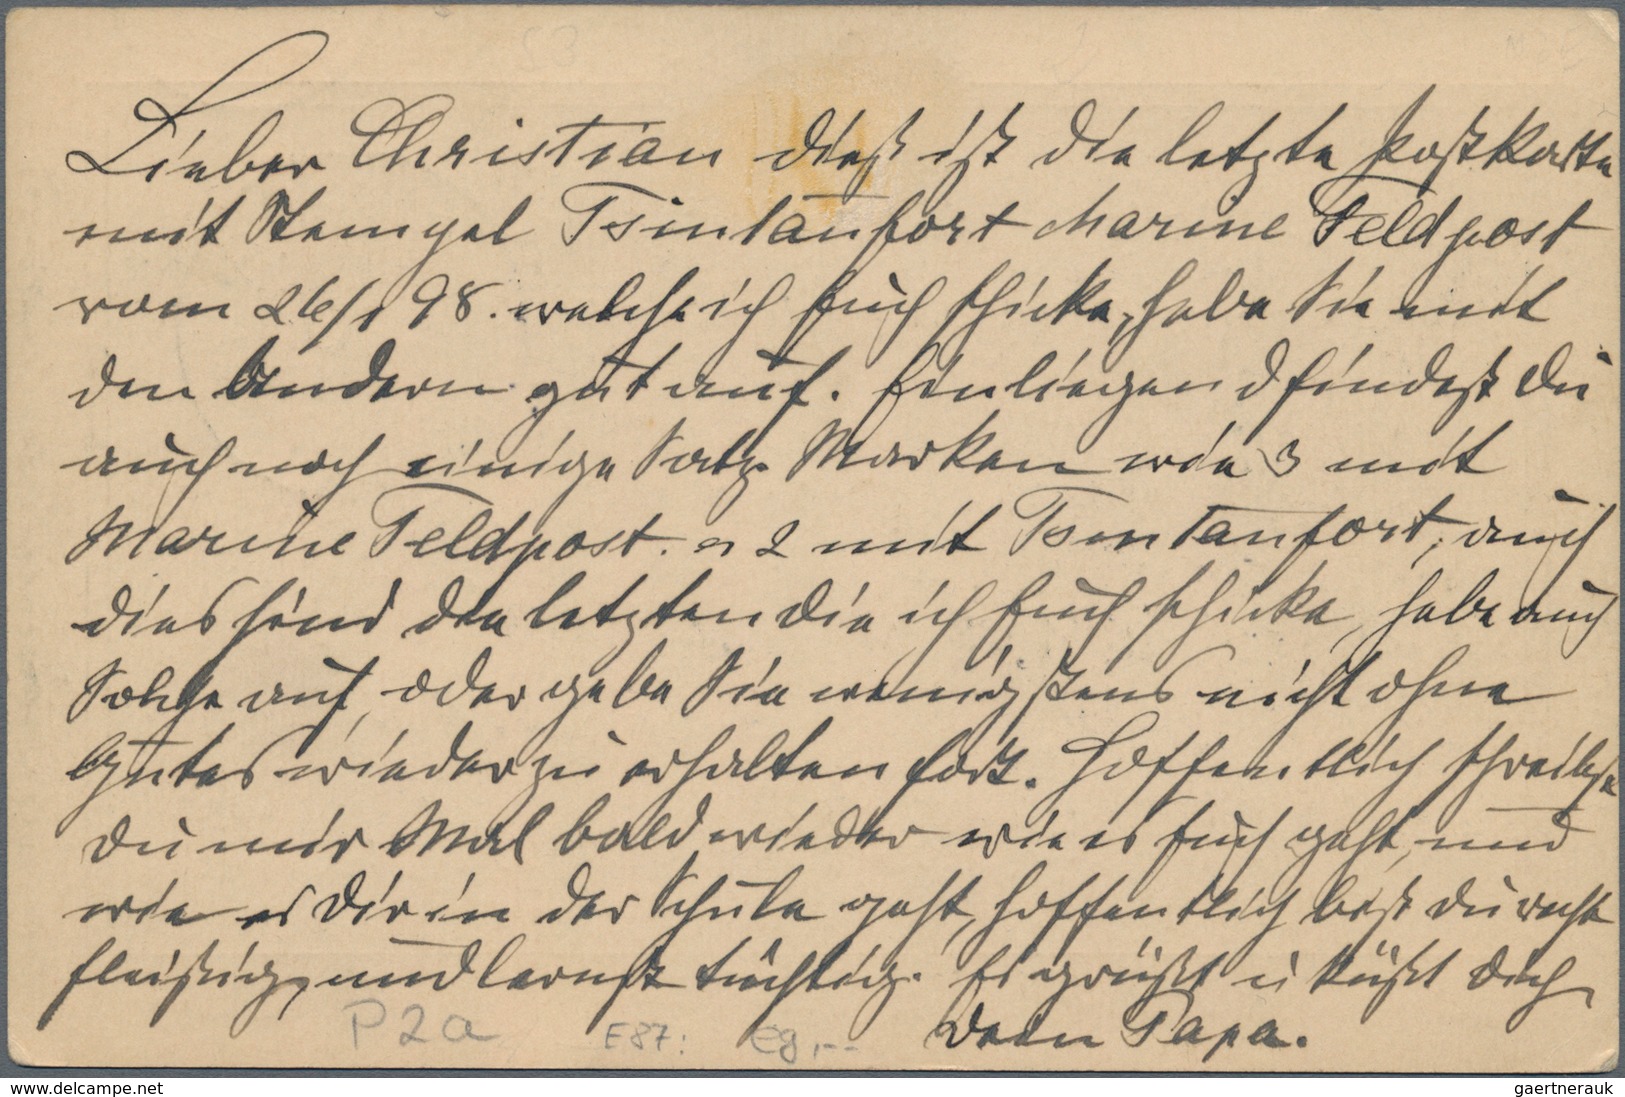 Lieber Christian dieß ist die letzte Postkarte
mit Stempel Tsintanfort Marine Feldpost
vom 26/1 98. welche ich Euch schicke, habe Sie mit
den Andern gut auf. Einliegend findest Du
auch noch einige Satz Marken wie 3 mit
Marine Feldpost. 2 mit Tsintanfort, auch
dies sind die letzten die ich Euch schicke, habe auch
Solche auf, oder gebe Sie wenigstens nicht ohne
Gutes wieder zu erhalten fort. Hoffentlich schreibst
Du mir Mal bald wieder wie es Euch geht, und
wie es Dir in der Schule geht, hoffentlich bist Du recht
fleißig, und lernst tüchtig. Es grüßt u küßt Dich
Dein Papa.
P2a E87:
www.delcampe.net
gaertnerauk